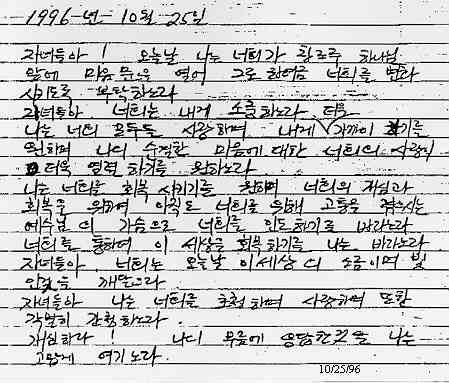 1996-년- 10월 25일
자녀들아! 오늘날 나는 너희가 하나님
앞에 마음 문을 열어 그로 하여금 너희를 변화
시키도록 부탁하노라
자녀들아 너희는 내게 소중하노라
나는 너희 모두를 사랑하며 내게 가까이 하기를
원하며 나의 순결한 마음에 대한 너희의 사랑이
더욱 열렬하기를 원하노라
나는 너희를 회복시키기를 원하며 너희의
회복을 위하여 아직도 너희를 위해 고통을 겪으시는
예수님의 가슴으로 너희를 인도하기를 바라노라
너희를 통하여 이 세상을 회복하기를 나는 바라노라
자녀들아 너희는 오늘날 이 세상의 소금이며 빛
임을 깨달으라
자녀들아 나는 너희를 초청하며 사랑하며 또한
각별히 간청하노라
개심하라! 나의 부름에 응답한것을 나는
고맙게 여기노라.
10/25/96